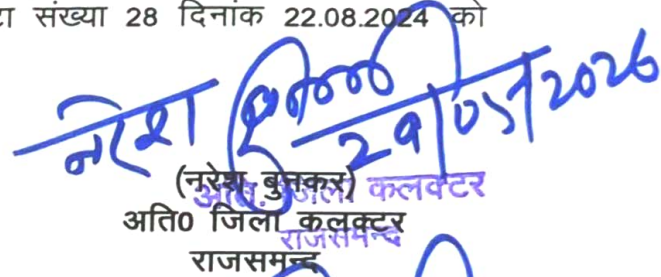 टा संख्या 28 दिनांक 22.08.2024 को
नरेश
29/05/2026
(नरेश बुनकर)
अति. जिला कलक्टर
अति0 जिला कलक्टर
राजसमन्द
राजसमन्द